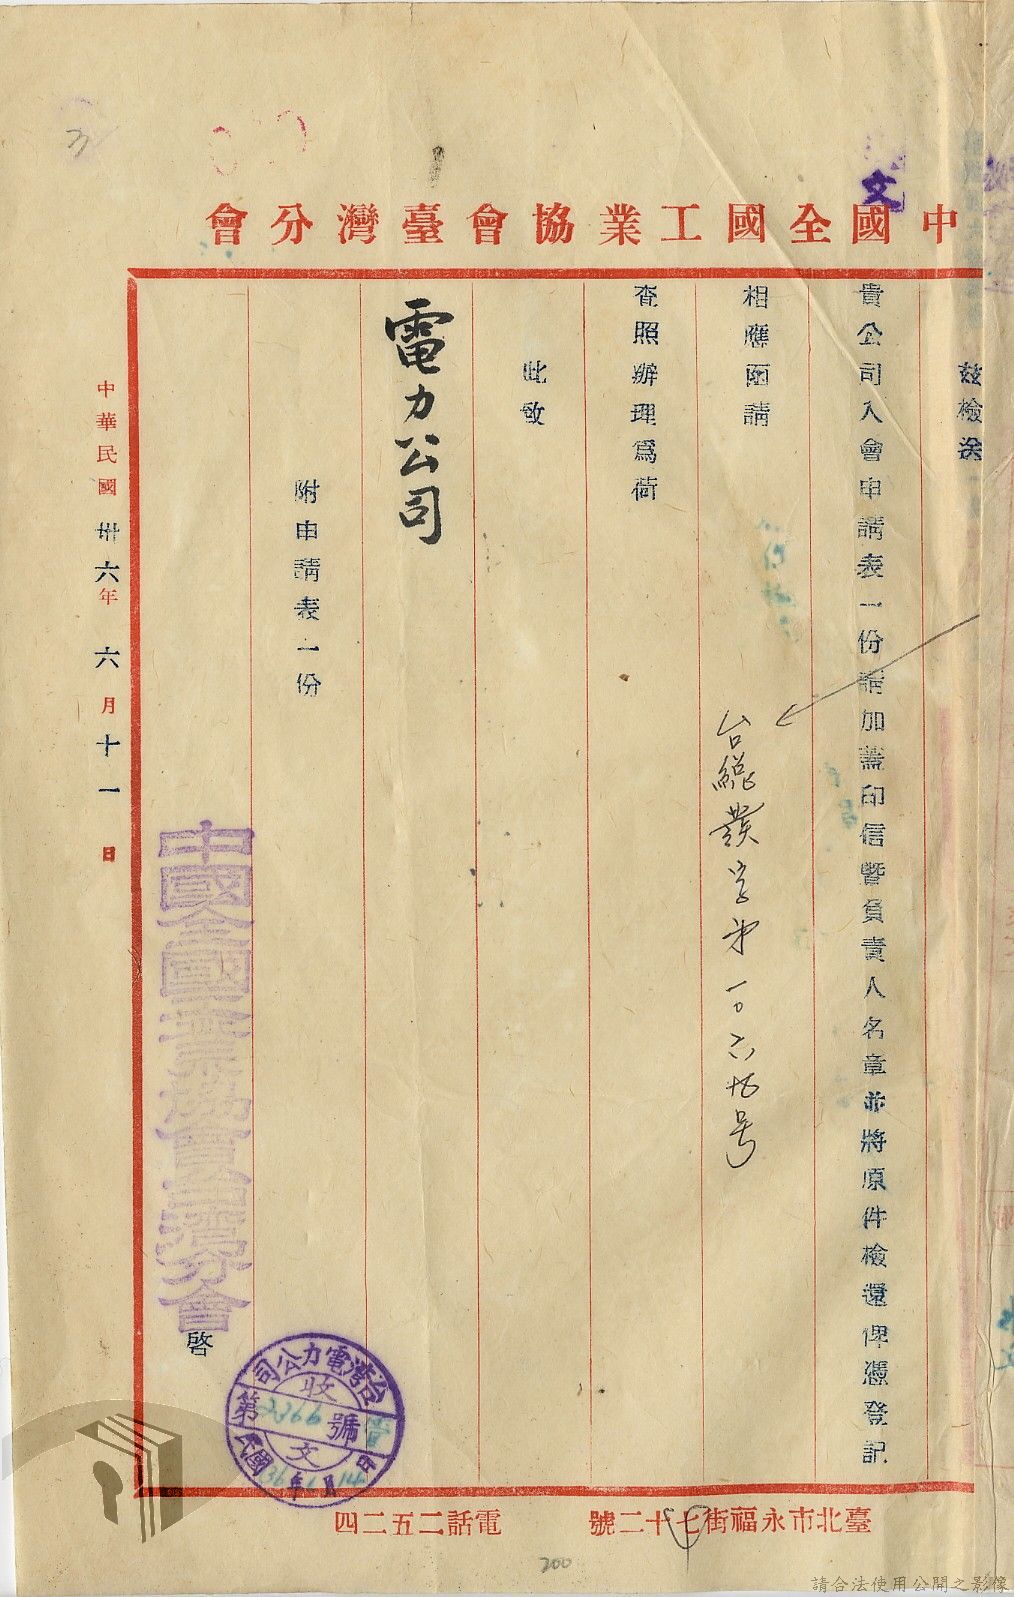 文
中國全國工業協會臺灣分會
茲檢送
貴公司入會申請表一份請加蓋印信暨負責人名章並將原件檢還俾憑登記
相應函請
查照辦理爲荷
此致
電力公司
附申請表一份
中國全國工業協會台灣分會
啓
中華民國卅六年六月十一日
字第一〇六
号
台灣電力公司
收文
第2366號
民國36年6月14日
臺北市永福街七十二號
電話二五二四
200
請合法使用公開之影像